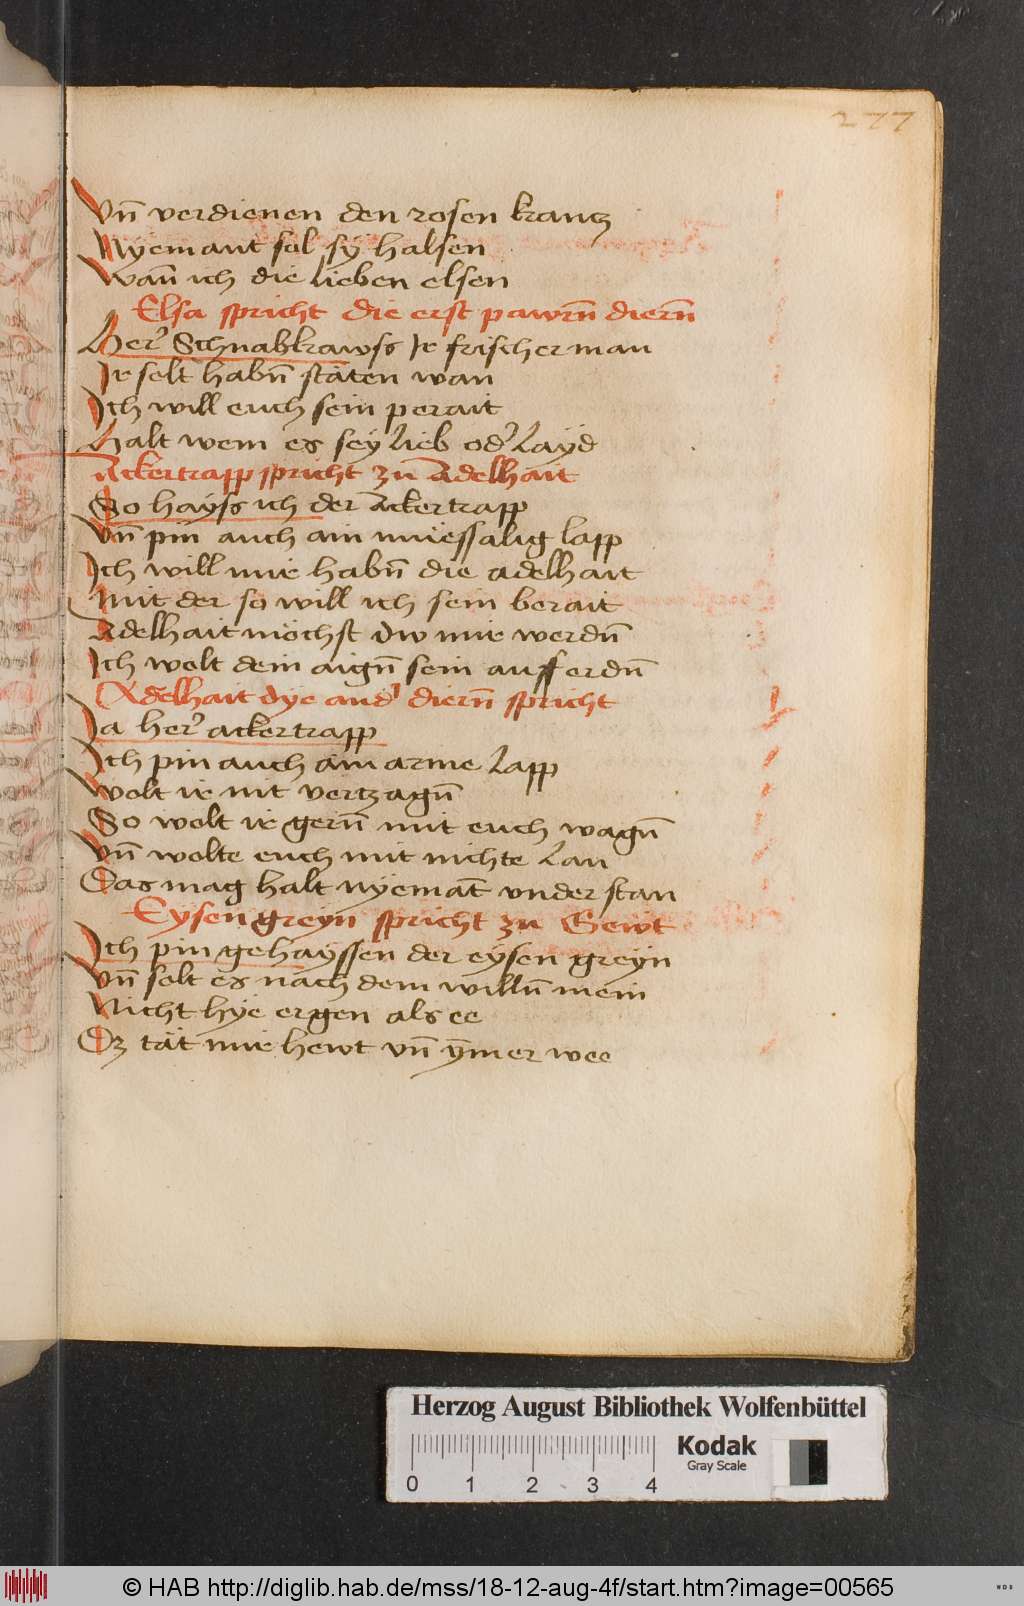 277
Vn̄ verdienen den rosen krantz
Nyemant sol sÿ halsen
Wan̄ ich die lieben elsen
Elsa spricht die erst pawrn̄ diern̄
Her' Schnabkrawss Ir frischer man
Ir solt habn̄ stäten wan
Ich will euch sein perait
Halt wem es seÿ lieb od' laÿd
Ackertrapp spricht zu Adelhait
So hayss ich der Ackertrapp
Vn̄ pin auch ain müessalig lapp
Ich will mir habn̄ die adelhait
Mit der so will ich sein berait
Adelhait möchst dw mir werdn̄
Ich wolt dein aign̄ sein auff erdn̄
Adelhait dye and' diern̄ spricht
Ja her' ackertrapp
Ich pin auch ain arme lapp
Wolt ir nit vertzagn̄
So wolt ir gern̄ mit euch wagn̄
Vn̄ wolte euch mit nichte lan
Das mag halt nÿemāt vnder stan
Eÿsengreÿn spricht zu Gewt
Ich pin gehaÿssen der eÿsen greÿn
Vn̄ solt es nach dem willn̄ mein
Nicht hÿe ergen als ee
Ez tät mir hewt vn̄ ÿm̄er wee
Herzog August Bibliothek Wolfenbüttel
Kodak
Gray Scale
0 1 2 3 4
© HAB http://diglib.hab.de/mss/18-12-aug-4f/start.htm?image=00565